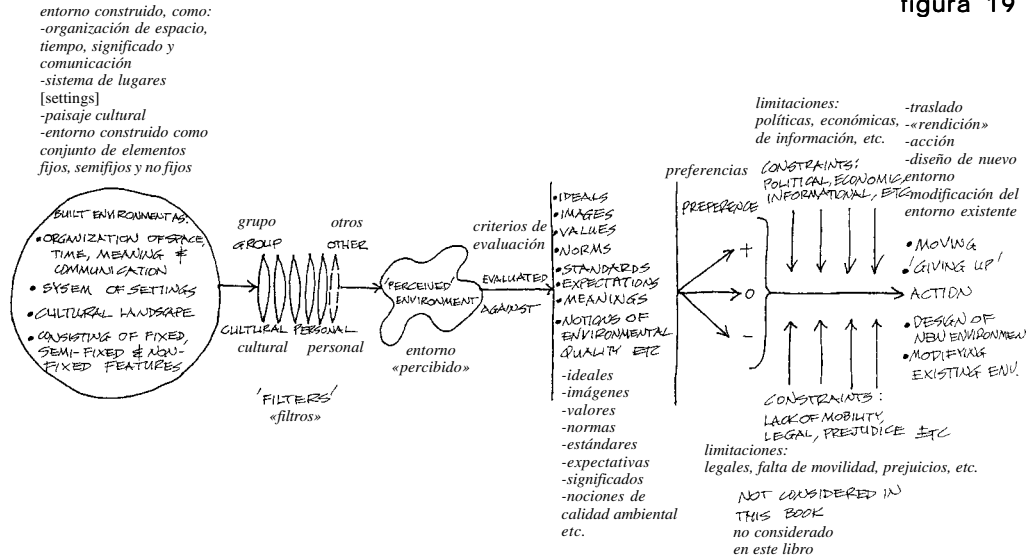 figura 19
entorno construido, como:
-organización de espacio,
tiempo, significado y
comunicación
-sistema de lugares
[settings]
-paisaje cultural
-entorno construido como
conjunto de elementos
fijos, semifijos y no fijos
BUILT ENVIRONMENT AS:
•ORGANIZATION OF SPACE,
TIME, MEANING &
COMMUNICATION
• SYSEM OF SETTINGS
•CULTURAL LANDSCAPE
•CONSISTING OF FIXED,
SEMI-FIXED & NON-
FIXED FEATURES
grupo
GROUP
otros
OTHER
CULTURAL PERSONAL
cultural personal
'FILTERS'
«filtros»
'PERCEIVED'
ENVIRONMENT
entorno
«percibido»
criterios de
evaluación
EVALUATED
AGAINST
•IDEALS
•IMAGES
•VALUES
•NORMS
•STANDARDS
•EXPECTATIONS
•MEANINGS
•NOTIONS OF
ENVIRONMENTAL
QUALITY ETC
-ideales
-imágenes
-valores
-normas
-estándares
-expectativas
-significados
-nociones de
calidad ambiental
etc.
preferencias
PREFERENCE
+
o
-
limitaciones:
políticas, económicas,
de información, etc.
CONSTRAINTS:
POLITICAL, ECONOMIC,
INFORMATIONAL, ETC
-traslado
-«rendición»
-acción
-diseño de nuevo
entorno
-modificación del
entorno existente
•MOVING
'GIVING UP'
ACTION
•DESIGN OF
NEW ENVIRONMEN
•MODIFYING
EXISTING ENV.
CONSTRAINTS:
LACK OF MOBILITY,
LEGAL, PREJUDICE ETC
limitaciones:
legales, falta de movilidad, prejuicios, etc.
NOT CONSIDERED IN
THIS BOOK
no considerado
en este libro